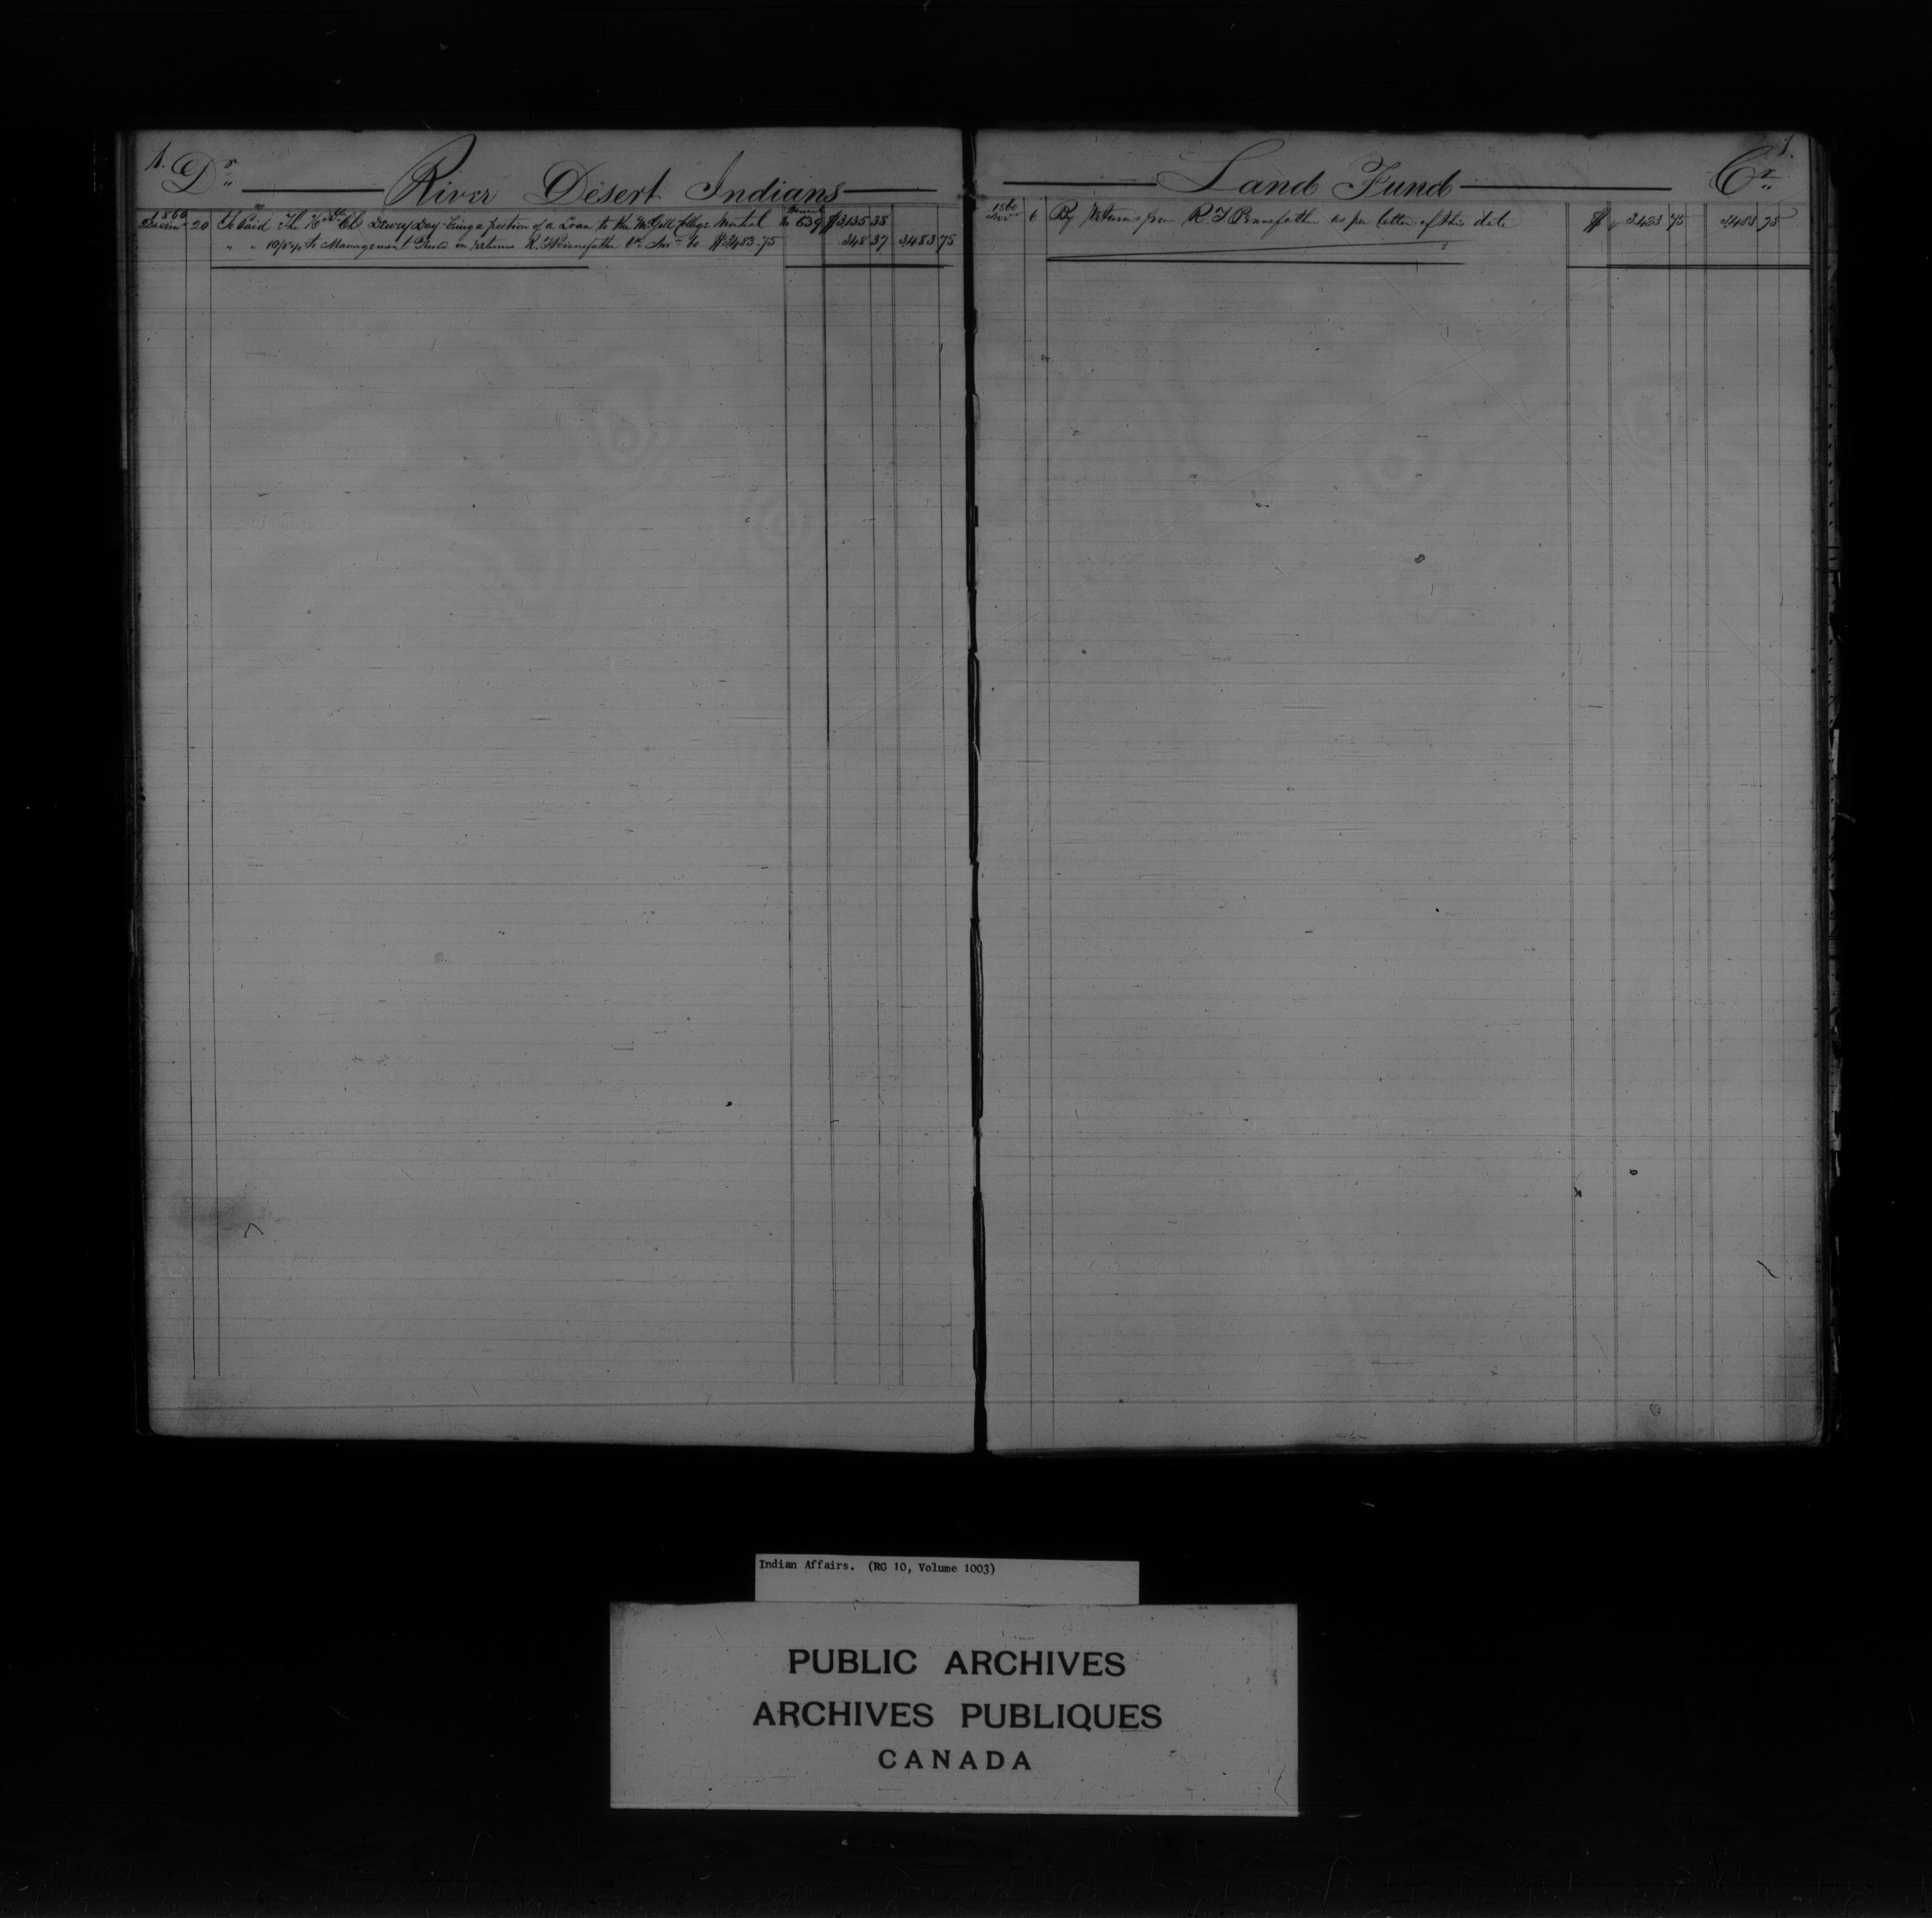 1. Dr River Desert Indians
1860
Decemr 20 To Paid The Honble Chs Dewey Day being a portion of a Loan to the McGill College Montreal No 639 $3,135 38
" " 10 pr % to Management Fund on returns R. T. Pennefather to $3,483.75 348 37 3,483 75
Land Fund Cr 1.
1860
Novr 6 By Returns from R T Pennefather as per letter of this date $ 3,483 75 3,483 75
Indian Affairs. (RG 10, Volume 1003)
PUBLIC ARCHIVES
ARCHIVES PUBLIQUES
CANADA